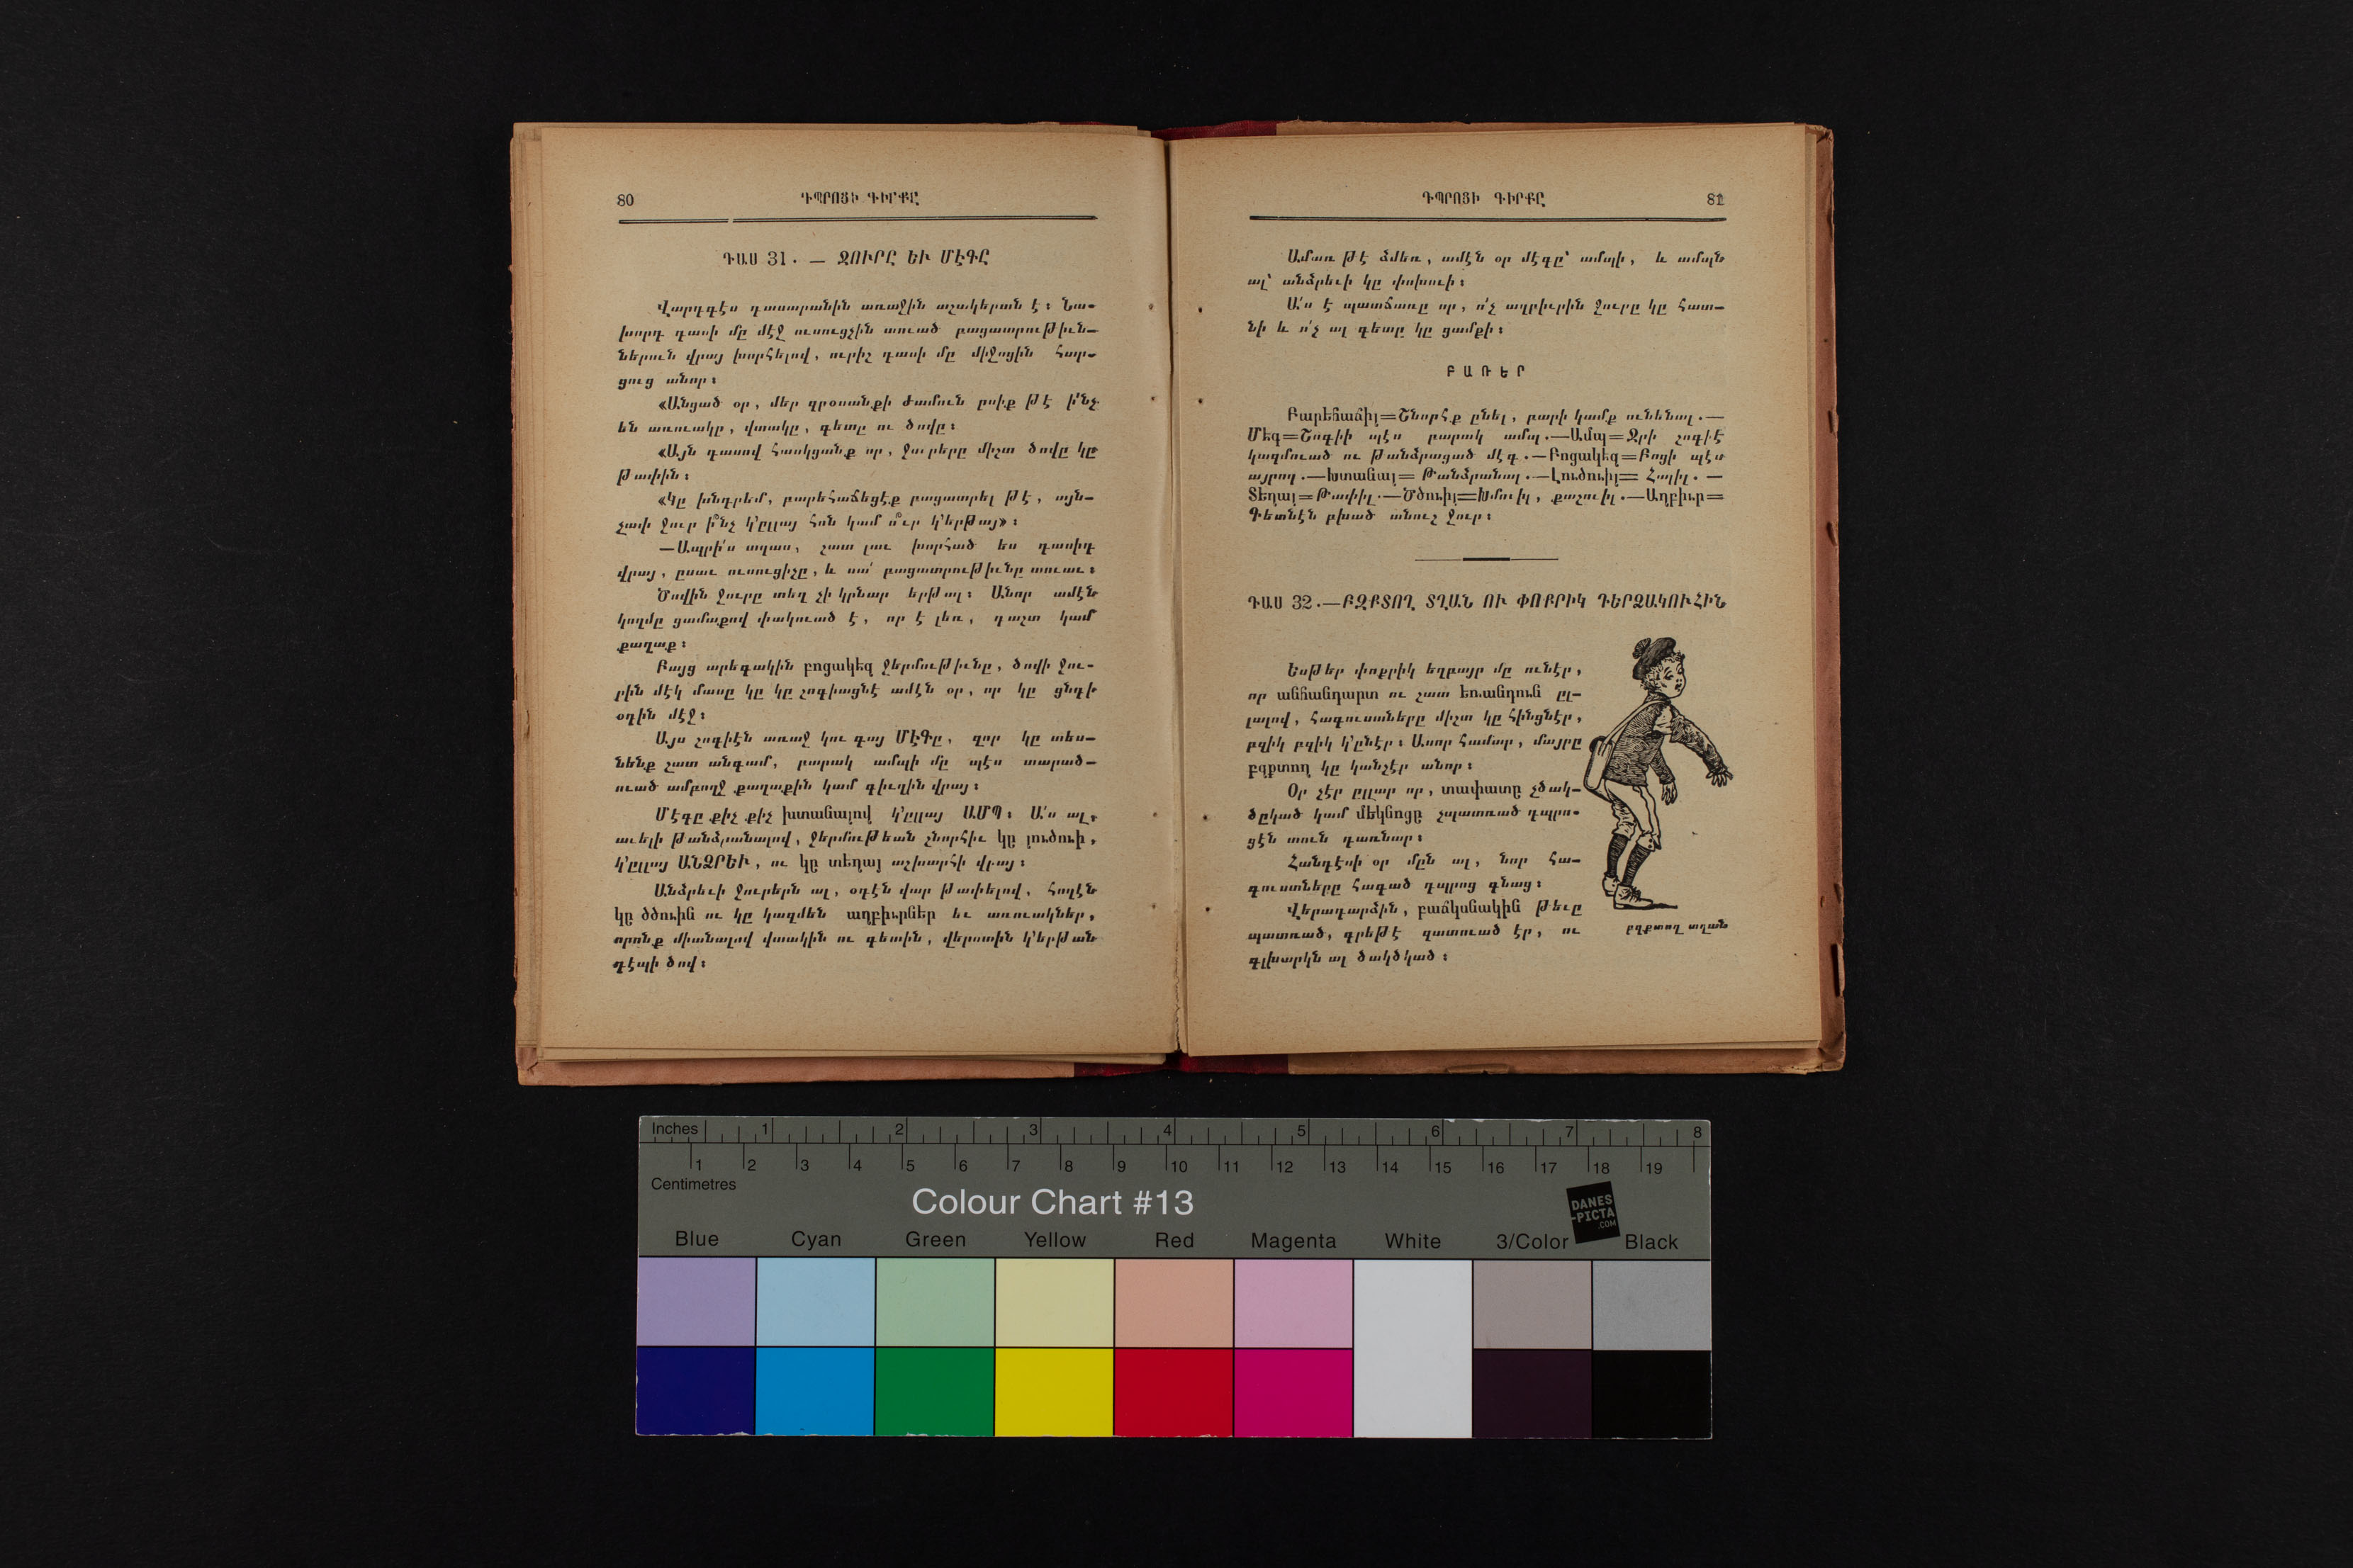 80 ԴՊՐՈՑԻ ԳԻՐՔԸ
ԴԱՍ 31. — ՋՈՒՐԸ ԵՒ ՄԷԳԸ
Վարդգէս դասարանին առաջին աշակերտն է։ Նա-
խորդ դասի մը մէջ ուսուցչին տուած բացատրութիւն-
ներուն վրայ խորհելով, ուրիշ դասի մը միջոցին հար-
ցուց անոր։
«Անցած օր, մեր զբօսանքի ժամուն ըսիք թէ ի՛նչ
են առուակը, վտակը, գետը ու ծովը։
«Այն դասով հասկցանք որ, ջուրերը միշտ ծովը կը
թափին։
«Կը խնդրեմ, բարեհաճեցէք բացատրել թէ, այն-
չափ ջուր ի՞նչ կ'ըլլայ հոն կամ ո՞ւր կ'երթայ»։
—Ապրի՛ս տղաս, շատ լաւ խորհած ես դասիդ
վրայ, ըսաւ ուսուցիչը, և սա՛ բացատրութիւնը տուաւ։
Ծովին ջուրը տեղ չի կրնար երթալ։ Անոր ամէն
կողմը ցամաքով փակուած է, որ է լեռ, դաշտ կամ
քաղաք։
Բայց արեգակին բոցակեզ ջերմութիւնը, ծովի ջու-
րին մէկ մասը կը կը շոգիացնէ ամէն օր, որ կը ցնդի
օդին մէջ։
Այս շոգիէն առաջ կու գայ ՄԷԳը, զոր կը տես-
նենք շատ անգամ, բարակ ամպի մը պէս տարած-
ուած ամբողջ քաղաքին կամ գիւղին վրայ։
Մէգը քիչ քիչ խտանալով կ'ըլլայ ԱՄՊ։ Ա՛ս ալ,
աւելի թանձրանալով, ջերմութեան շնորհիւ կը լուծուի,
կ'ըլլայ ԱՆՁՐԵՒ, ու կը տեղայ աշխարհի վրայ։
Անձրեւի ջուրերն ալ, օդէն վար թափելով, հողէն
կը ծծուին ու կը կազմեն աղբիւրներ եւ առուակներ,
որոնք միանալով վտակին ու գետին, վերստին կ'երթան
դէպի ծով։
ԴՊՐՈՑԻ ԳԻՐՔԸ 81
Ամառ թէ ձմեռ, ամէն օր մէգը՝ ամպի, և ամպն
ալ՝ անձրեւի կը փոխուի։
Ա՛ս է պատճառը որ, ո՛չ աղբիւրին ջուրը կը հատ-
նի և ո՛չ ալ գետը կը ցամքի։
ԲԱՌԵՐ
Բարեհաճիլ=Շնորհք ընել, բարի կամք ունենալ.—
Մեգ=Շոգիի պէս բարակ ամպ.—Ամպ=Ջրի շոգիէ
կազմուած ու թանձրացած մէգ.—Բոցակեզ=Բոցի պէս
այրող.—Խտանալ= Թանձրանալ.—Լուծուիլ= Հալիլ. —
Տեղալ=Թափիլ.—Ծծուիլ=Խմուիլ, քաշուիլ.—Աղբիւր=
Գետնէն բխած անուշ ջուր։
ԴԱՍ 32.—ԲԶՔՏՈՂ ՏՂԱՆ ՈՒ ՓՈՔՐԻԿ ԴԵՐՁԱԿՈՒՀԻՆ
Եսթեր փոքրիկ եղբայր մը ունէր,
որ անհանդարտ ու շատ եռանդուն ըլ-
լալով, հագուստները միշտ կը հինցնէր,
բզիկ բզիկ կ'ընէր։ Ասոր համար, մայրը
բզքտող կը կանչէր անոր։
Օր չէր ըլլար որ, տափատը չծակ-
ծըկած կամ մեկնոցը չպատռած դպրո-
ցէն տուն դառնար։
Հանդէսի օր մըն ալ, նոր հա-
գուստները հագած դպրոց գնաց։
Վերադարձին, բաճկոնակին թեւը
պատռած, գրեթէ զատուած էր, ու
գլխարկն ալ ծակծկած։
բզքտող տղան
Inches 1 2 3 4 5 6 7 8
1 2 3 4 5 6 7 8 9 10 11 12 13 14 15 16 17 18 19
Centimetres
Colour Chart #13
DANES
-PICTA
.COM
Blue Cyan Green Yellow Red Magenta White 3/Color Black